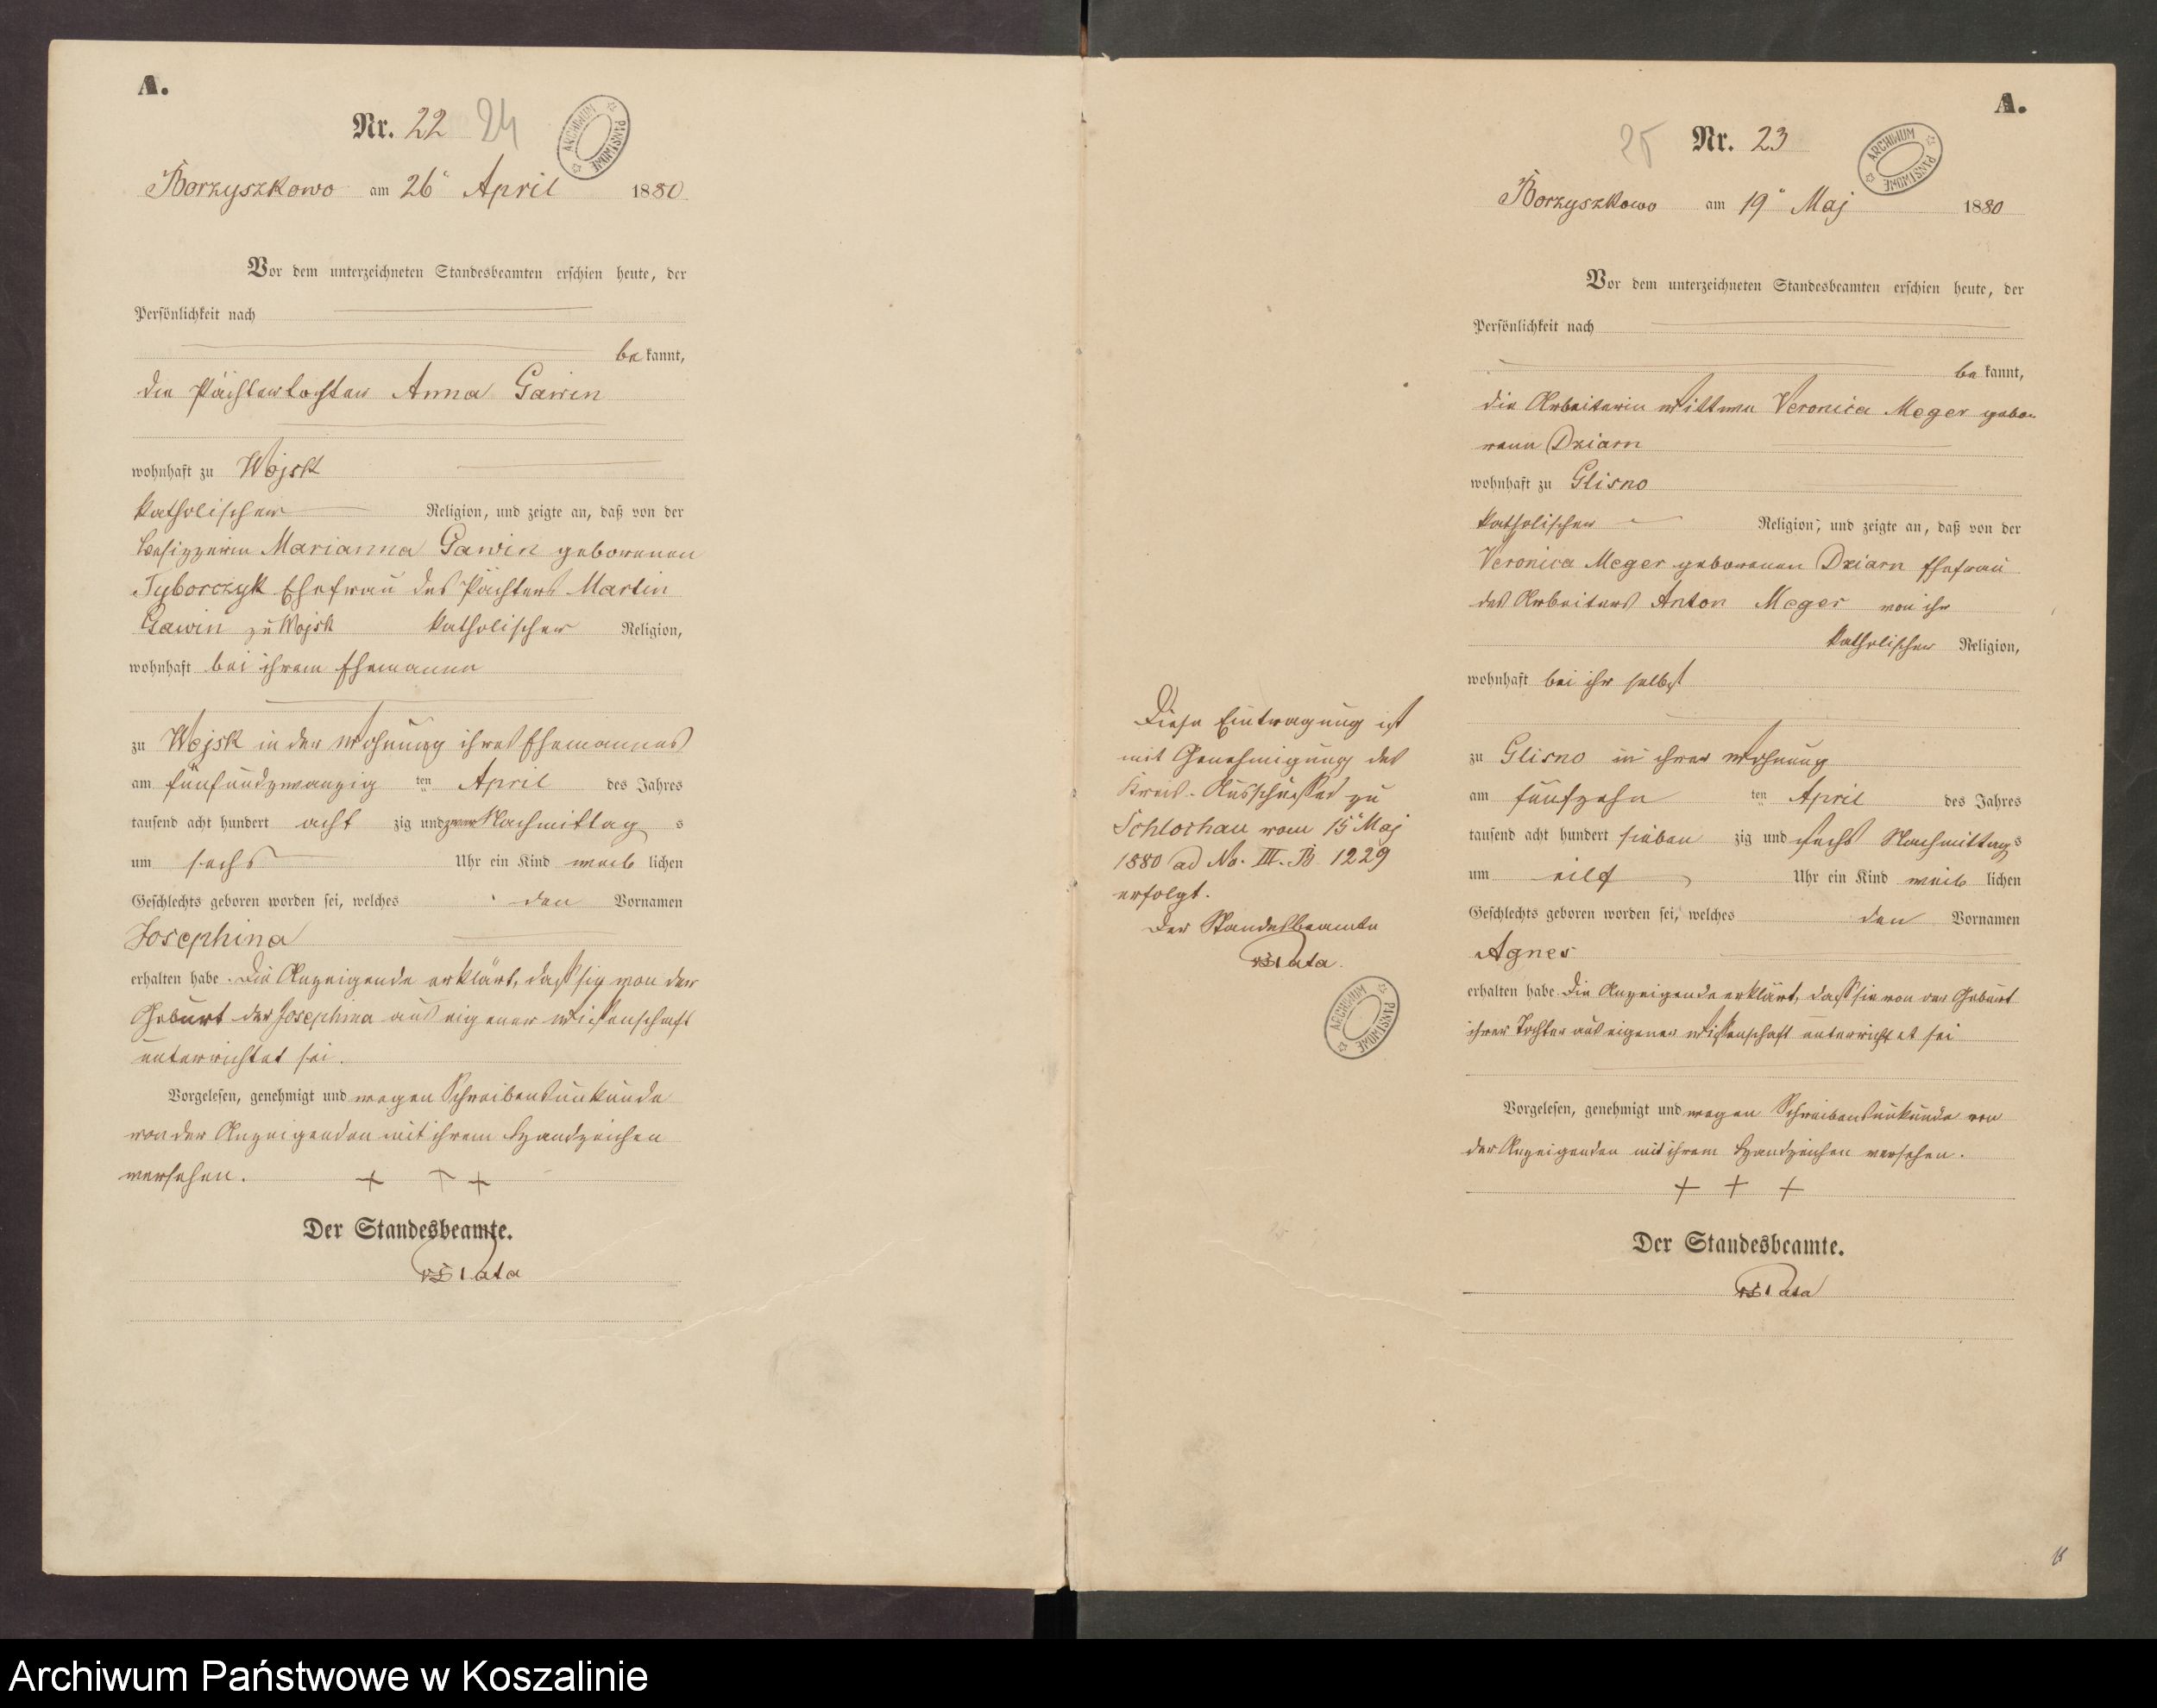 A.
Nr. 22 24
ARCHIWUM PAŃSTWOWE
Borzyszkowo am 26 April 1880.
Vor dem unterzeichneten Standesbeamten erschien heute, der
Persönlichkeit nach
be kannt,
die Pächtertochter Anna Gawin
wohnhaft zu Wojsk
katholischer Religion, und zeigte an, daß von der
Marianna Gawin geborenen
Tyborczyk Ehefrau des Pächters Martin
Gawin zu Wojsk katholischer Religion,
wohnhaft bei ihrem Ehemanne
zu Wojsk in der Wohnung ihres Ehemannes
am fünfundzwanzig ten April des Jahres
tausend acht hundert acht zig und Nachmittag s
um sechs Uhr ein Kind weib lichen
Geschlechts geboren worden sei, welches den Vornamen
Josephina
erhalten habe. Die Anzeigende erklärt, daß sie von der
Geburt der Josephina aus eigener Wissenschaft
unterrichtet sei.
Vorgelesen, genehmigt und wegen Schreibensunkunde
von der Anzeigenden mit ihrem Handzeichen
versehen. + + +
Der Standesbeamte.
A.
25 Nr. 23
ARCHIWUM PAŃSTWOWE
Borzyszkowo am 19 Maj 1880
Vor dem unterzeichneten Standesbeamten erschien heute, der
Persönlichkeit nach
be kannt,
die Arbeiterin Wittwe Veronica Meger gebo-
rene Dziarn
wohnhaft zu Glisno
katholischer Religion, und zeigte an, daß von der
Veronica Meger geborenen Dziarn Ehefrau
des Arbeiters Anton Meger von ihr
katholischer Religion,
wohnhaft bei ihr selbst
zu Glisno in ihrer Wohnung
am fünfzehn ten April des Jahres
tausend acht hundert sieben zig und sechs Nachmittags
um eilf Uhr ein Kind weib lichen
Geschlechts geboren worden sei, welches den Vornamen
Agnes
erhalten habe. Die Anzeigende erklärt, daß sie von der Geburt
ihrer Tochter aus eigener Wissenschaft unterrichtet sei
Vorgelesen, genehmigt und wegen Schreibensunkunde von
der Anzeigenden mit ihrem Handzeichen versehen.
+ + +
Der Standesbeamte.
Diese Eintragung ist
mit Genehmigung des
Kreis-Ausschusses zu
Schlochau vom 15 Maj
1880 ad No. III. B. 1229
erfolgt.
Der Standesbeamte
ARCHIWUM PAŃSTWOWE
Archiwum Państwowe w Koszalinie